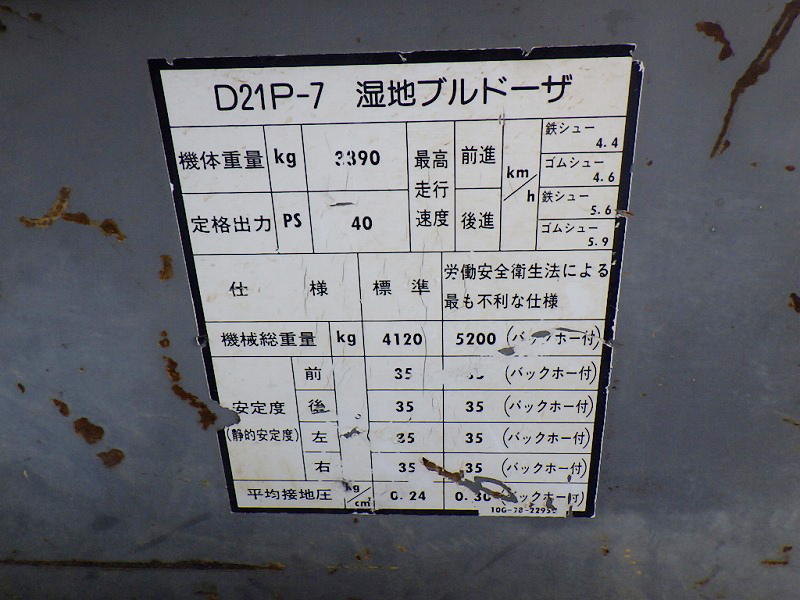 D21P-7 湿地ブルドーザ
機体重量 kg 3390 最高走行速度 前進 km/h 鉄シュー 4.4
ゴムシュー 4.6
定格出力 PS 40 後進 鉄シュー 5.6
ゴムシュー 5.9
仕様 標準 労働安全衛生法による
最も不利な仕様
機械総重量 kg 4120 5200 (バックホー付)
安定度 (静的安定度) 前 35 (バックホー付)
後 35 35 (バックホー付)
左 35 35 (バックホー付)
右 35 35 (バックホー付)
平均接地圧 kg/cm² 0.24 0.30 (バックホー付)